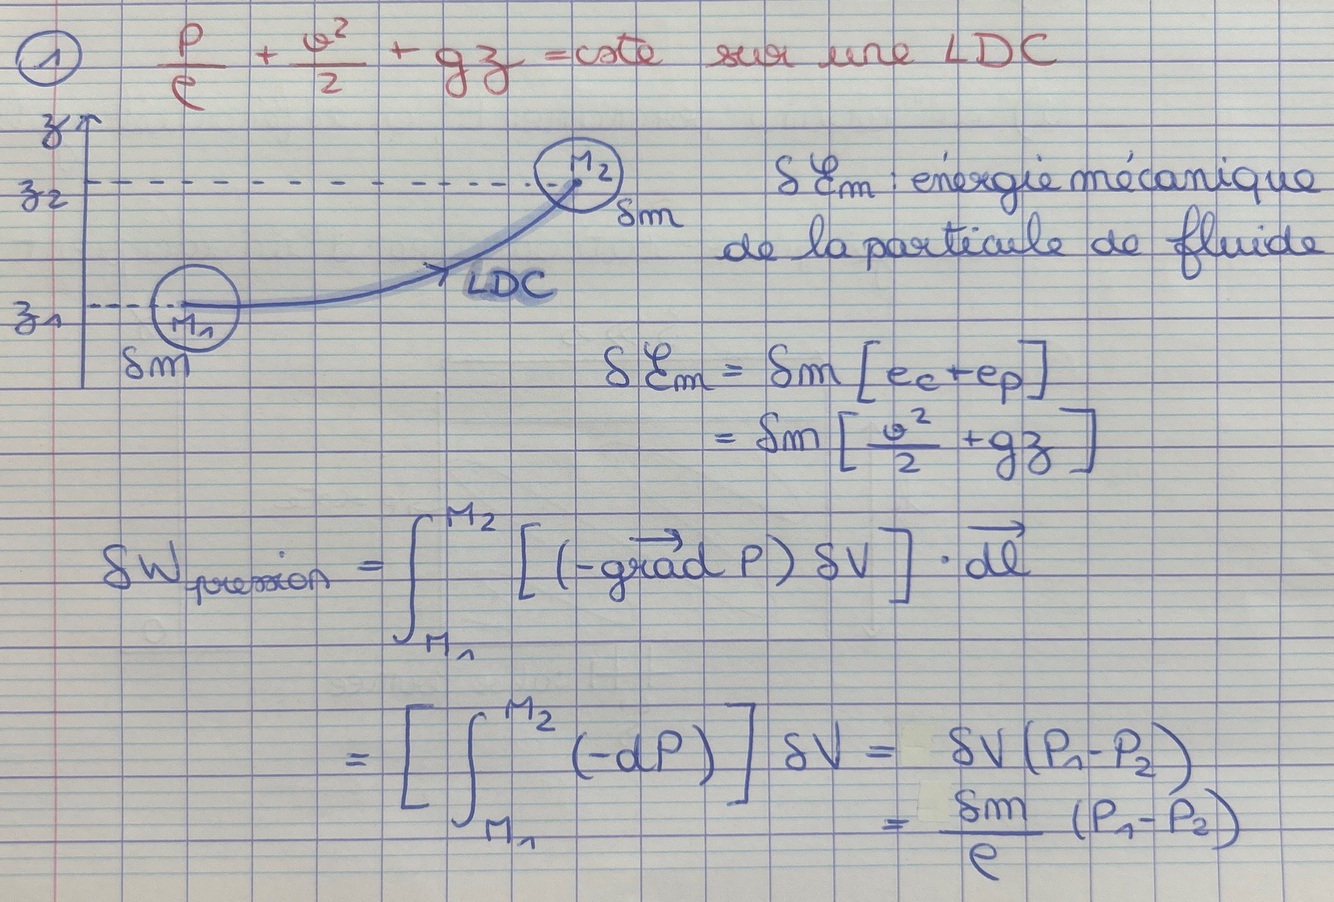 ① P/ρ + v²/2 + gz = cste sur une LDC
z
z₂
M₂
δm
δℰm : énergie mécanique
de la particule de fluide
LDC
z₁
M₁
δm
δℰm = δm [ec + ep]
= δm [v²/2 + gz]
δW pression = ∫_{M₁}^{M₂} [(-grad⃗ P) δV] · dl⃗
= [∫_{M₁}^{M₂} (-dP)] δV = δV(P₁ - P₂)
= δm/ρ (P₁ - P₂)